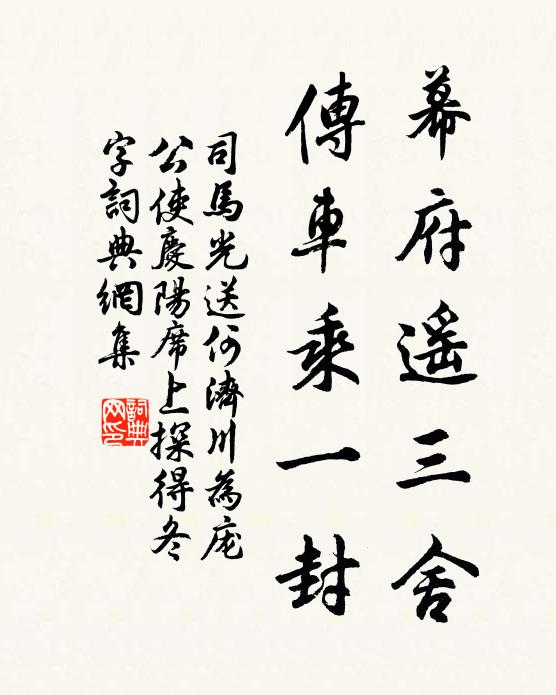 幕府遥三舍
傳車乘一封
司馬光送何濟川為庞
公使慶陽席上探得冬
字詞典網集
詞典
网印